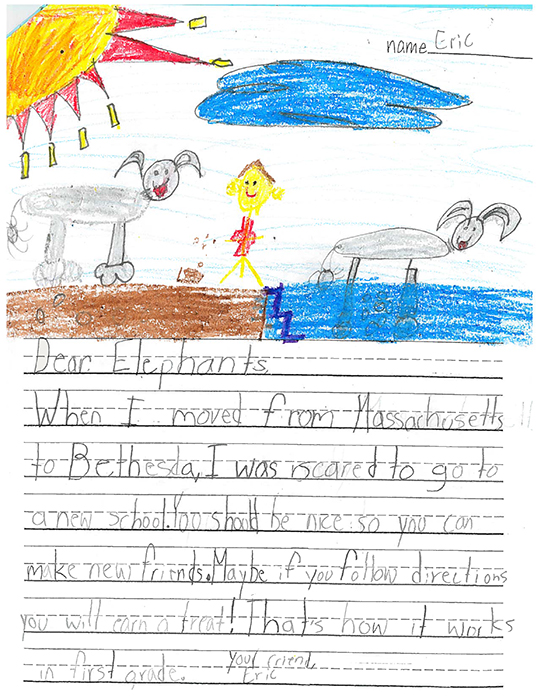 name Eric
Dear Elephants
When I moved from Massachusetts
to Bethesda, I was scared to go to
a new school. You should be nice so you can
make new friends. Maybe if you follow directions
you will earn a treat! That's how it works
in first grade. your friend,
Eric